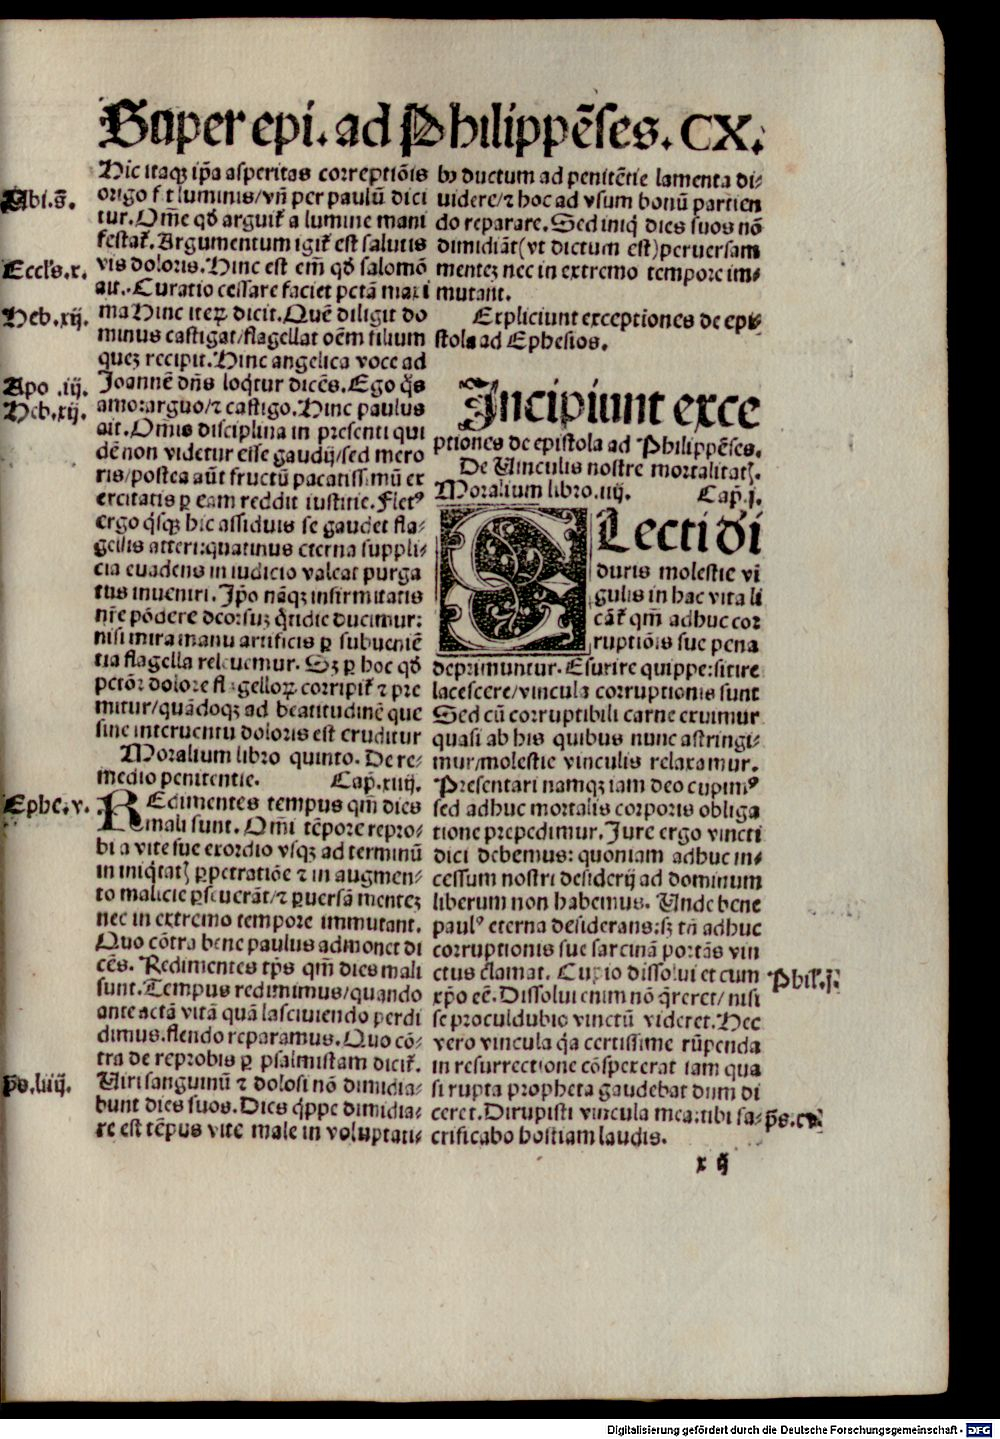 Super epi. ad Philippēses. CX.
Hic itaqꝫ ip̄a asperitas correptiōis
Vbi.s̄.
origo fit luminis/vn̄ per paulū dici
tur. Om̄e qd̓ arguit᷑ a lumine mani
festat᷑. Argumentum igit᷑ est salutis
Eccl̓s.x.
vis doloris. Hinc est em̄ qd̓ salomō
ait. Curatio cessare faciet pctā maxi
Heb.xij.
ma Hinc iteꝝ dicit. Quē diligit do
minus castigat/flagellat oēm filium
quez recipit. Hinc angelica voce ad
Apo .iij.
Joannē dn̄s loq̄tur dicēs. Ego q̄s
Heb.xij.
amo:arguo/⁊ castigo. Hinc paulus
ait. Om̄is disciplina in presenti qui
dē non videtur esse gaudij/sed mero
ris/postea aūt fructū pacatissimū ex
ercitatis ꝑ eam reddit iustitie. Fletꝰ
ergo q̄sqꝫ hic assiduis se gaudet fla-
gellis atteri:quatinus eterna suppli-
cia euadens in iudicio valeat purga
tus inueniri. Jp̄o nāqꝫ infirmitatis
nr̄e pōdere deorsuꝫ q̄tidie ducimur:
nisi mira manu artificis ꝑ subueniē
tia flagella releuemur. Sꝫ ꝑ hoc qd̓
pctōꝝ dolore flagelloꝝ corripit᷑ ⁊ pre
mitur/quādoqꝫ ad beatitudinē que
sine interuentu doloris est eruditur
Moralium libro quinto. De re-
medio penitentie. Cap̄.xiiij.
Ephe.v.
REdimentes tempus qm̄ dies
mali sunt. Om̄i tēpore repro-
bi a vite sue exordio vsqꝫ ad terminū
in iniq̄tatꝭ ꝑpetratiōe ⁊ in augmen-
to malicie ꝑseuerāt/⁊ ꝑuersā mentez
nec in extremo tempore immutant.
Quo cōtra bene paulus admonet di
cēs. Redimentes tp̄s qm̄ dies mali
sunt. Tempus redimimus/quando
ante actā vitā quā lasciuiendo perdi
dimus. flendo reparamus. Quo cō-
tra de reprobis ꝑ psalmistam dicit᷑.
ps̄.liiij.
Viri sanguinū ⁊ dolosi nō dimidia-
bunt dies suos. Dies q̄ppe dimidia-
re est tēpus vite male in voluptati-
bꝰ ductum ad penitētie lamenta di-
uidere/⁊ hoc ad vsum bonū partien
do reparare. Sed iniq̄ dies suos nō
dimidiāt(vt dictum est)peruersam
mentez nec in extremo tempore im-
mutant.
Expliciunt exceptiones de epi-
stola ad Ephesios.
Jncipiunt exce
ptiones de epistola ad Philippēses.
De Vinculis nostre mortalitatꝭ.
Moralium libro.iiij. Cap̄.j.
ELecti d̓i
duris molestie vī
gulis in hac vita li
cāt᷑ qm̄ adhuc cor
ruptiōis sue pena
deprimuntur. Esurire quippe:sitire
lacescere/vincula corruptionis sunt
Sed cū corruptibili carne exuimur
quasi ab his quibus nunc astringi-
mur/molestie vinculis relaxamur.
Presentari namqꝫ iam deo cupimꝰ
sed adhuc mortalis corporis obliga
tione prepedimur. Jure ergo vincti
dici debemus: quoniam adhuc in-
cessum nostri desiderij ad dominum
liberum non habemus. Unde bene
paulꝰ eterna desiderans:sꝫ tn̄ adhuc
corruptionis sue sarcinā portās vin
ctus clamat. Cupio dissolui et cum
Phil̓.j.
xp̄o eē. Dissolui enim nō q̄reret/ nisi
se proculdubio vinctū videret. Hec
vero vincula q̄a certissime rūpenda
in resurrectione cōspexerat iam qua
si rupta propheta gaudebat dum di
ceret. Dirupisti vincula mea:tibi sa-
ps̄.cxv.
crificabo hostiam laudis.
x ij
Digitalisierung gefördert durch die Deutsche Forschungsgemeinschaft - DFG